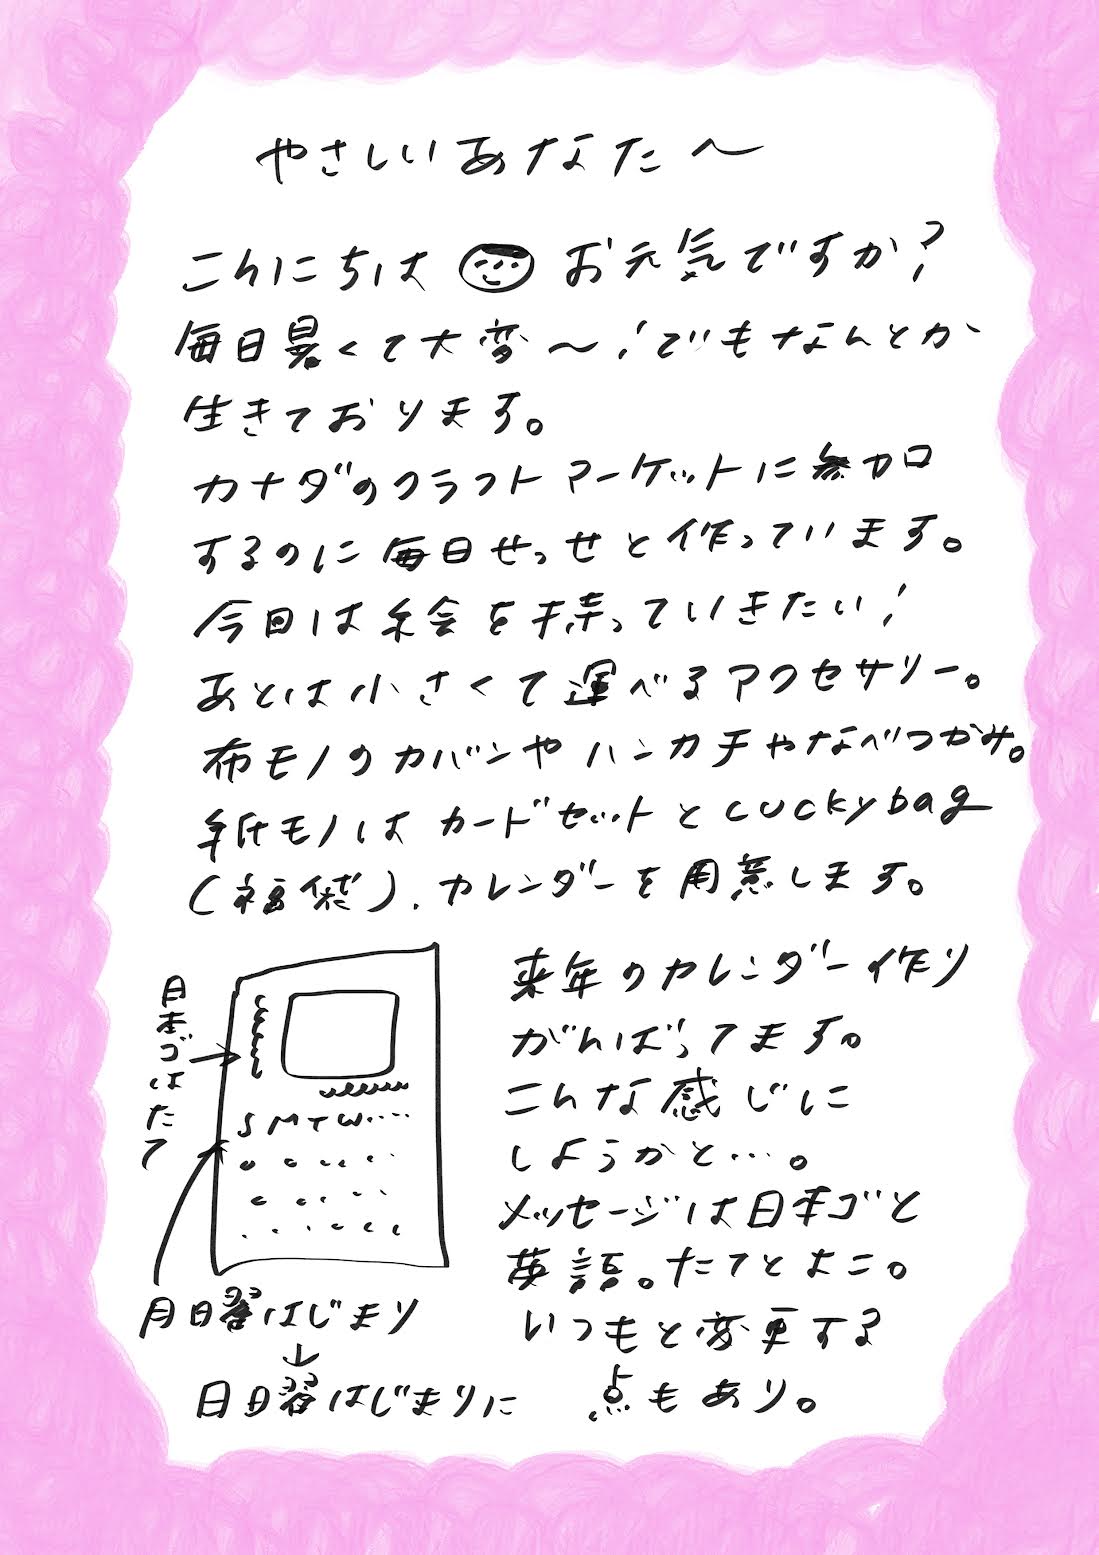 やさしいあなた〜
こんにちは お元気ですか？
毎日暑くて大変〜！でもなんとか
生きております。
カナダのクラフトマーケットに参加
するのに毎日せっせと作っています。
今回は絵を持っていきたい！
あとは小さくて運べるアクセサリー。
布モノのカバンやハンカチやなべつかみ。
紙モノはカードセットとluckybag
(福袋)、カレンダーを用意します。
日本ゴはたて
S M T W....
月日曜はじまり
↓
日日曜はじまりに
来年のカレンダー作り
がんばってます。
こんな感じに
しようかと…。
メッセージは日本ゴと
英語。たてとよこ。
いつもと変更する
点もあり。